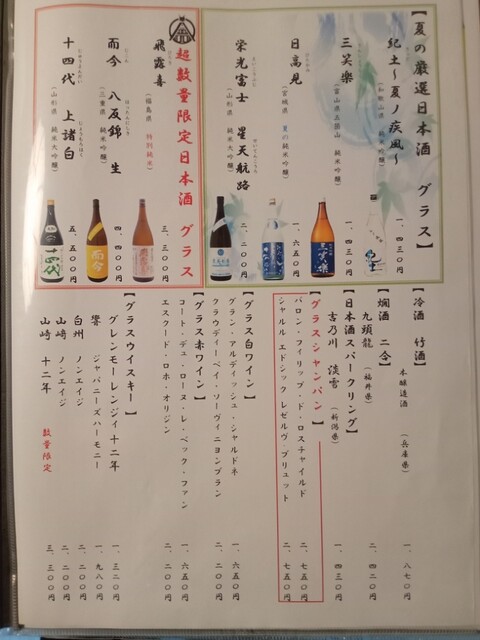 【夏の厳選日本酒 グラス】
紀土～夏ノ疾風～
（和歌山県 純米吟醸）
一、四三〇円
三笑楽
（富山県五箇山 純米吟醸）
一、四三〇円
日高見
（宮城県 夏の純米吟醸）
一、六五〇円
栄光冨士 星天航路
（山形県 純米大吟醸）
二、二〇〇円
超数量限定日本酒 グラス
飛露喜
（福島県 特別純米）
三、三〇〇円
而今 八反錦 生
（三重県 純米吟醸）
四、四〇〇円
十四代 上諸白
（山形県 純米大吟醸）
五、五〇〇円
冷酒 竹酒
本醸造酒 （兵庫県）
一、八七〇円
【燗酒 二合】
九頭龍（福井県）
二、四二〇円
【日本酒スパークリング】
吉乃川 淡雪（新潟県）
一、四三〇円
【グラスシャンパン】
バロン・フィリップ・ド・ロスチャイルド
二、七五〇円
シャルル エドシック レゼルヴ ブリュット
二、七五〇円
【グラス白ワイン】
グラン・アルディッシュ・シャルドネ
一、六五〇円
クラウディーベイ・ソーヴィニヨンブラン
二、二〇〇円
【グラス赤ワイン】
コート・デュ・ローヌ・レ・ベック・ファン
一、六五〇円
エスクード・ロホ・オリジン
二、二〇〇円
【グラスウイスキー】
グレンモーレンジィ十二年
一、三二〇円
響 ジャパニーズハーモニー
一、九八〇円
白州 ノンエイジ
二、二〇〇円
山崎 ノンエイジ
二、二〇〇円
山崎 十二年 数量限定
三、三〇〇円